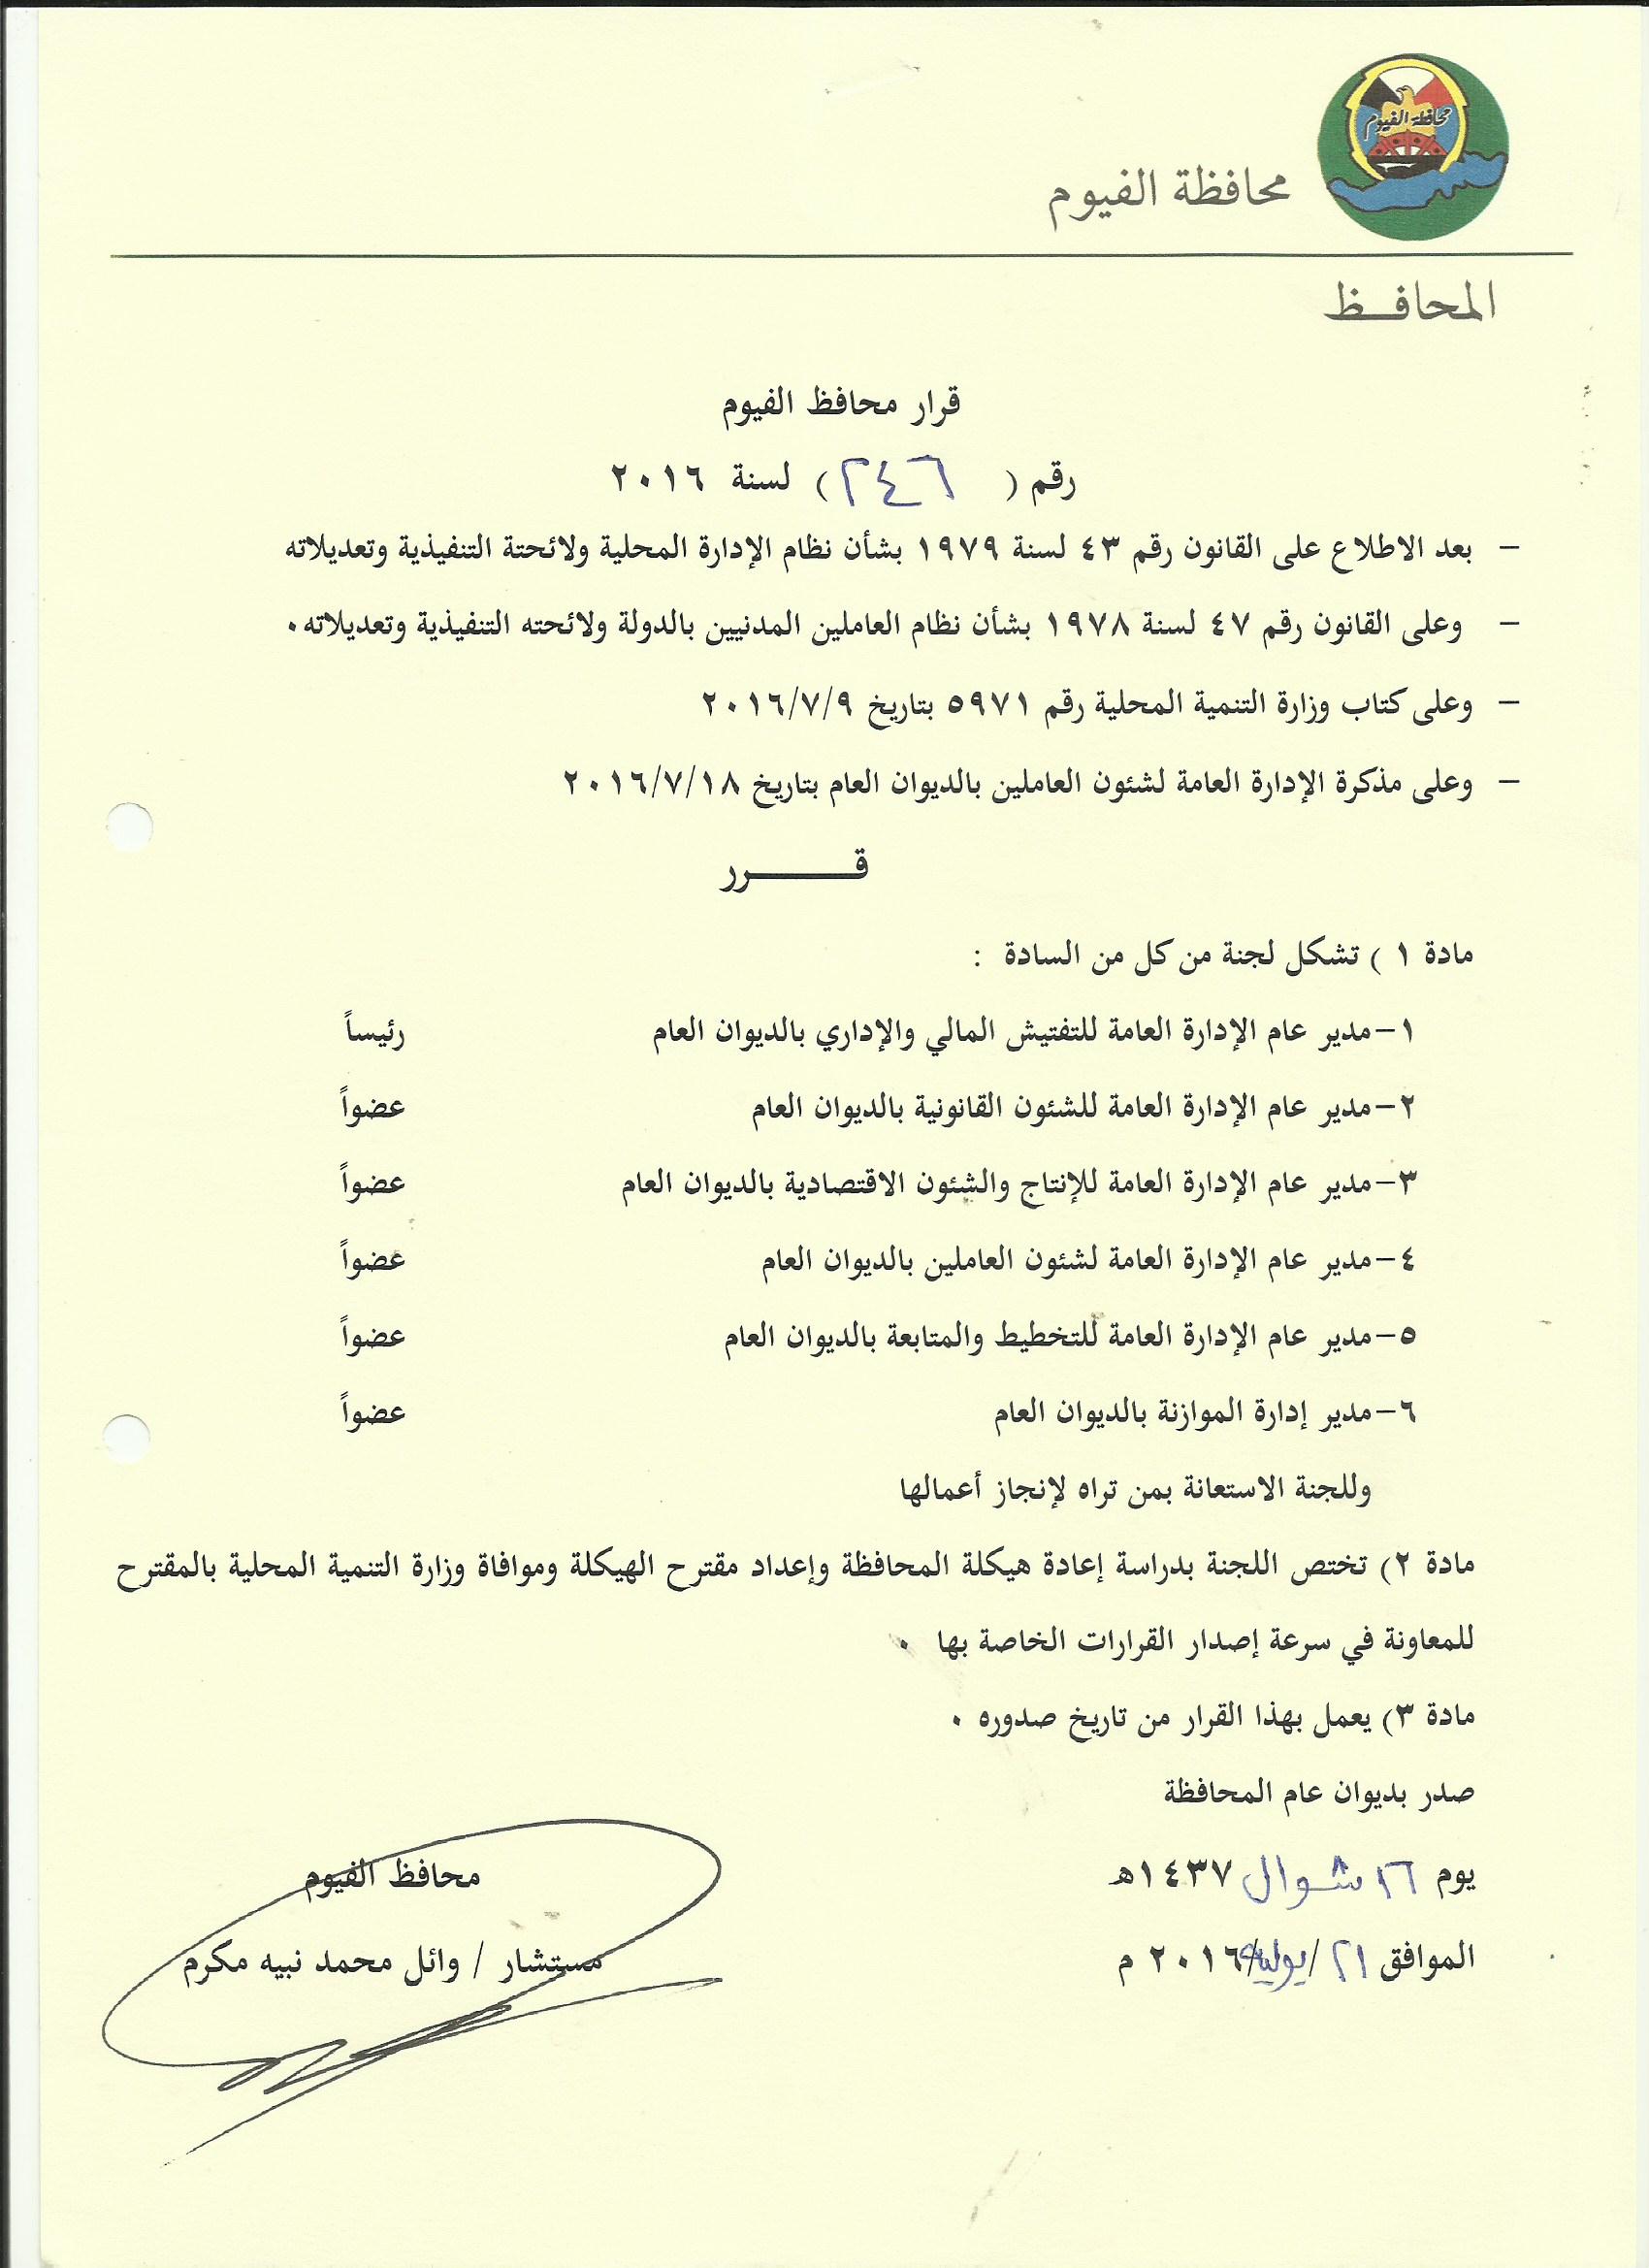 محافظة الفيوم
محافظة الفيوم
المحافــظ
قرار محافظ الفيوم
رقم ( ٢٤٦ ) لسنة ٢٠١٦
– بعد الاطلاع على القانون رقم ٤٣ لسنة ١٩٧٩ بشأن نظام الإدارة المحلية ولائحتة التنفيذية وتعديلاته
– وعلى القانون رقم ٤٧ لسنة ١٩٧٨ بشأن نظام العاملين المدنيين بالدولة ولائحته التنفيذية وتعديلاته٠
– وعلى كتاب وزارة التنمية المحلية رقم ٥٩٧١ بتاريخ ٢٠١٦/٧/٩
– وعلى مذكرة الإدارة العامة لشئون العاملين بالديوان العام بتاريخ ٢٠١٦/٧/١٨
قــــــرر
مادة ١ ) تشكل لجنة من كل من السادة :
١–مدير عام الإدارة العامة للتفتيش المالي والإداري بالديوان العام رئيساً
٢–مدير عام الإدارة العامة للشئون القانونية بالديوان العام عضواً
٣–مدير عام الإدارة العامة للإنتاج والشئون الاقتصادية بالديوان العام عضواً
٤–مدير عام الإدارة العامة لشئون العاملين بالديوان العام عضواً
٥–مدير عام الإدارة العامة للتخطيط والمتابعة بالديوان العام عضواً
٦–مدير إدارة الموازنة بالديوان العام عضواً
وللجنة الاستعانة بمن تراه لإنجاز أعمالها
مادة ٢) تختص اللجنة بدراسة إعادة هيكلة المحافظة وإعداد مقترح الهيكلة وموافاة وزارة التنمية المحلية بالمقترح
للمعاونة في سرعة إصدار القرارات الخاصة بها ٠
مادة ٣) يعمل بهذا القرار من تاريخ صدوره ٠
صدر بديوان عام المحافظة
يوم ١٦ شوال ١٤٣٧هـ
محافظ الفيوم
الموافق ٢١ /يوليه/٢٠١٦ م
مستشار / وائل محمد نبيه مكرم